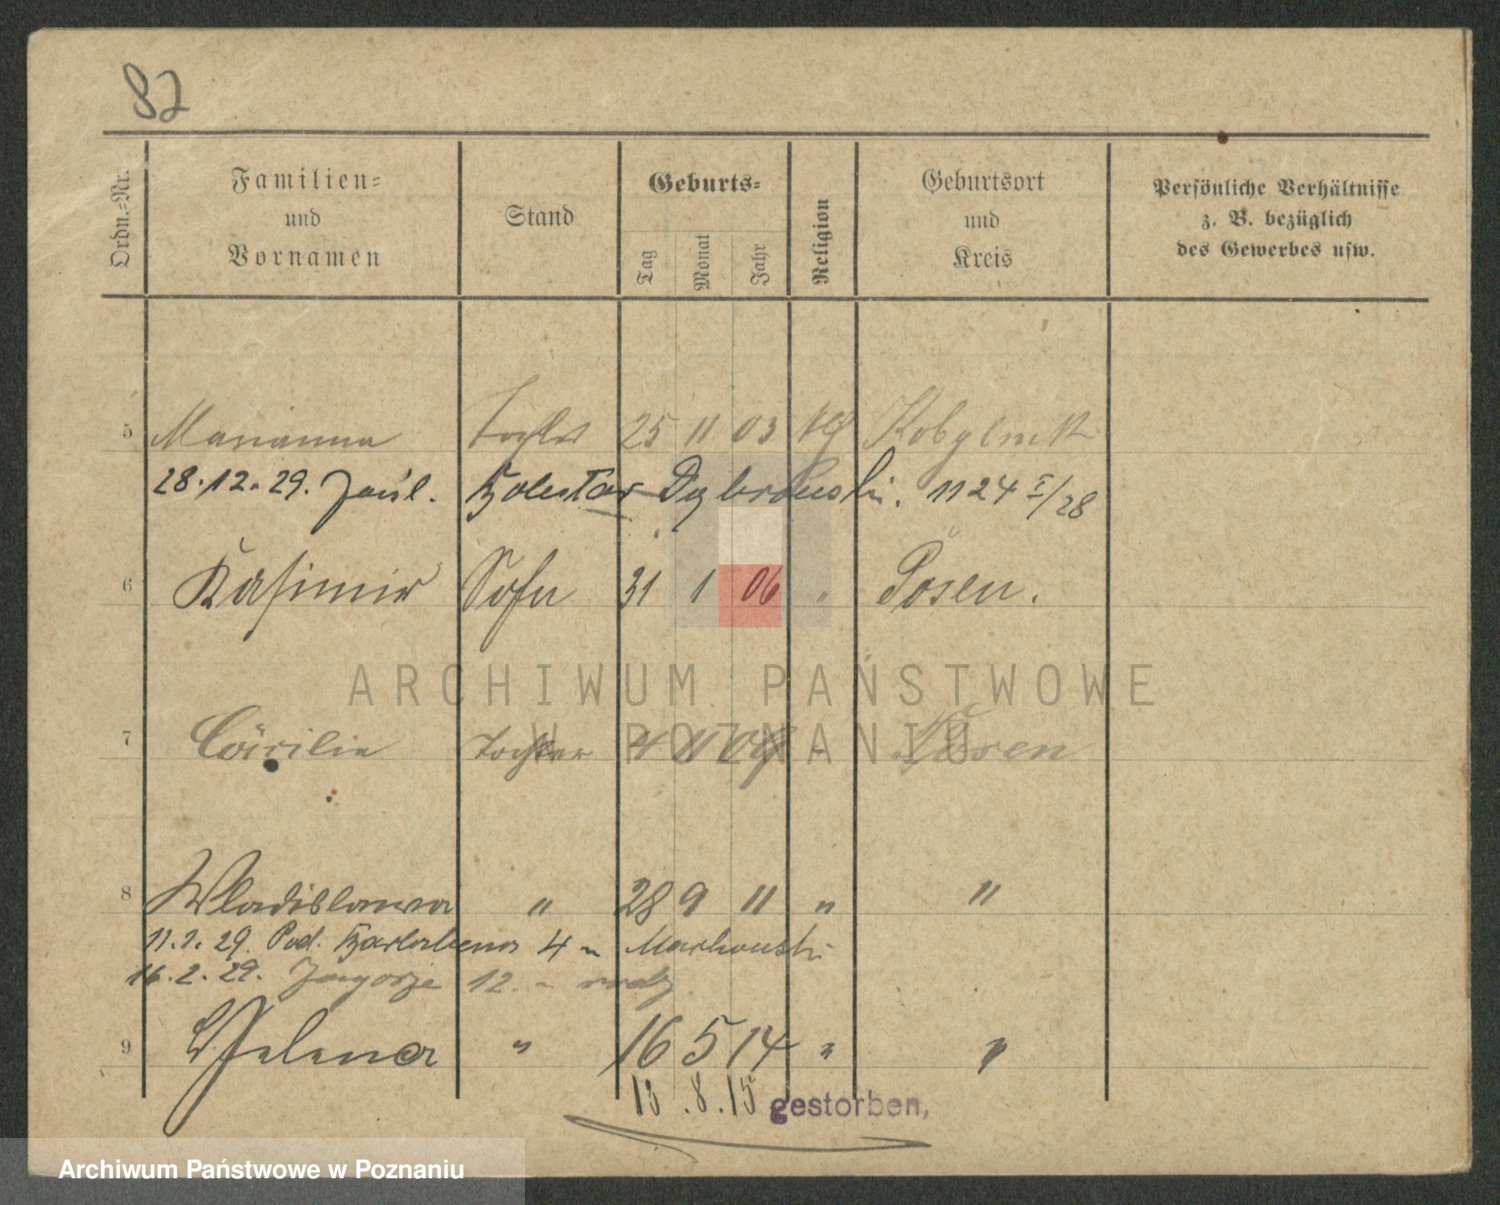 82
Ordn.-Nr.
Familien-
und
Vornamen
Stand
Geburts-
Tag
Monat
Jahr
Religion
Geburtsort
und
Kreis
Persönliche Verhältnisse
z. B. bezüglich
des Gewerbes usw.
5 Marianna Tochter 25 11 03
28.12.29. 1124 I/28
6 Kasimir Sohn 31 1 06 Posen.
7 Cäcilie Tochter 4 11 Posen
8 Wladislawa " 28 9 11 " "
29. Pod. 4 - Markowski
16.2.29. 12. -
9 Helena " 16 5 14 " "
13.8.15 gestorben,
ARCHIWUM PAŃSTWOWE
W POZNANIU
Archiwum Państwowe w Poznaniu